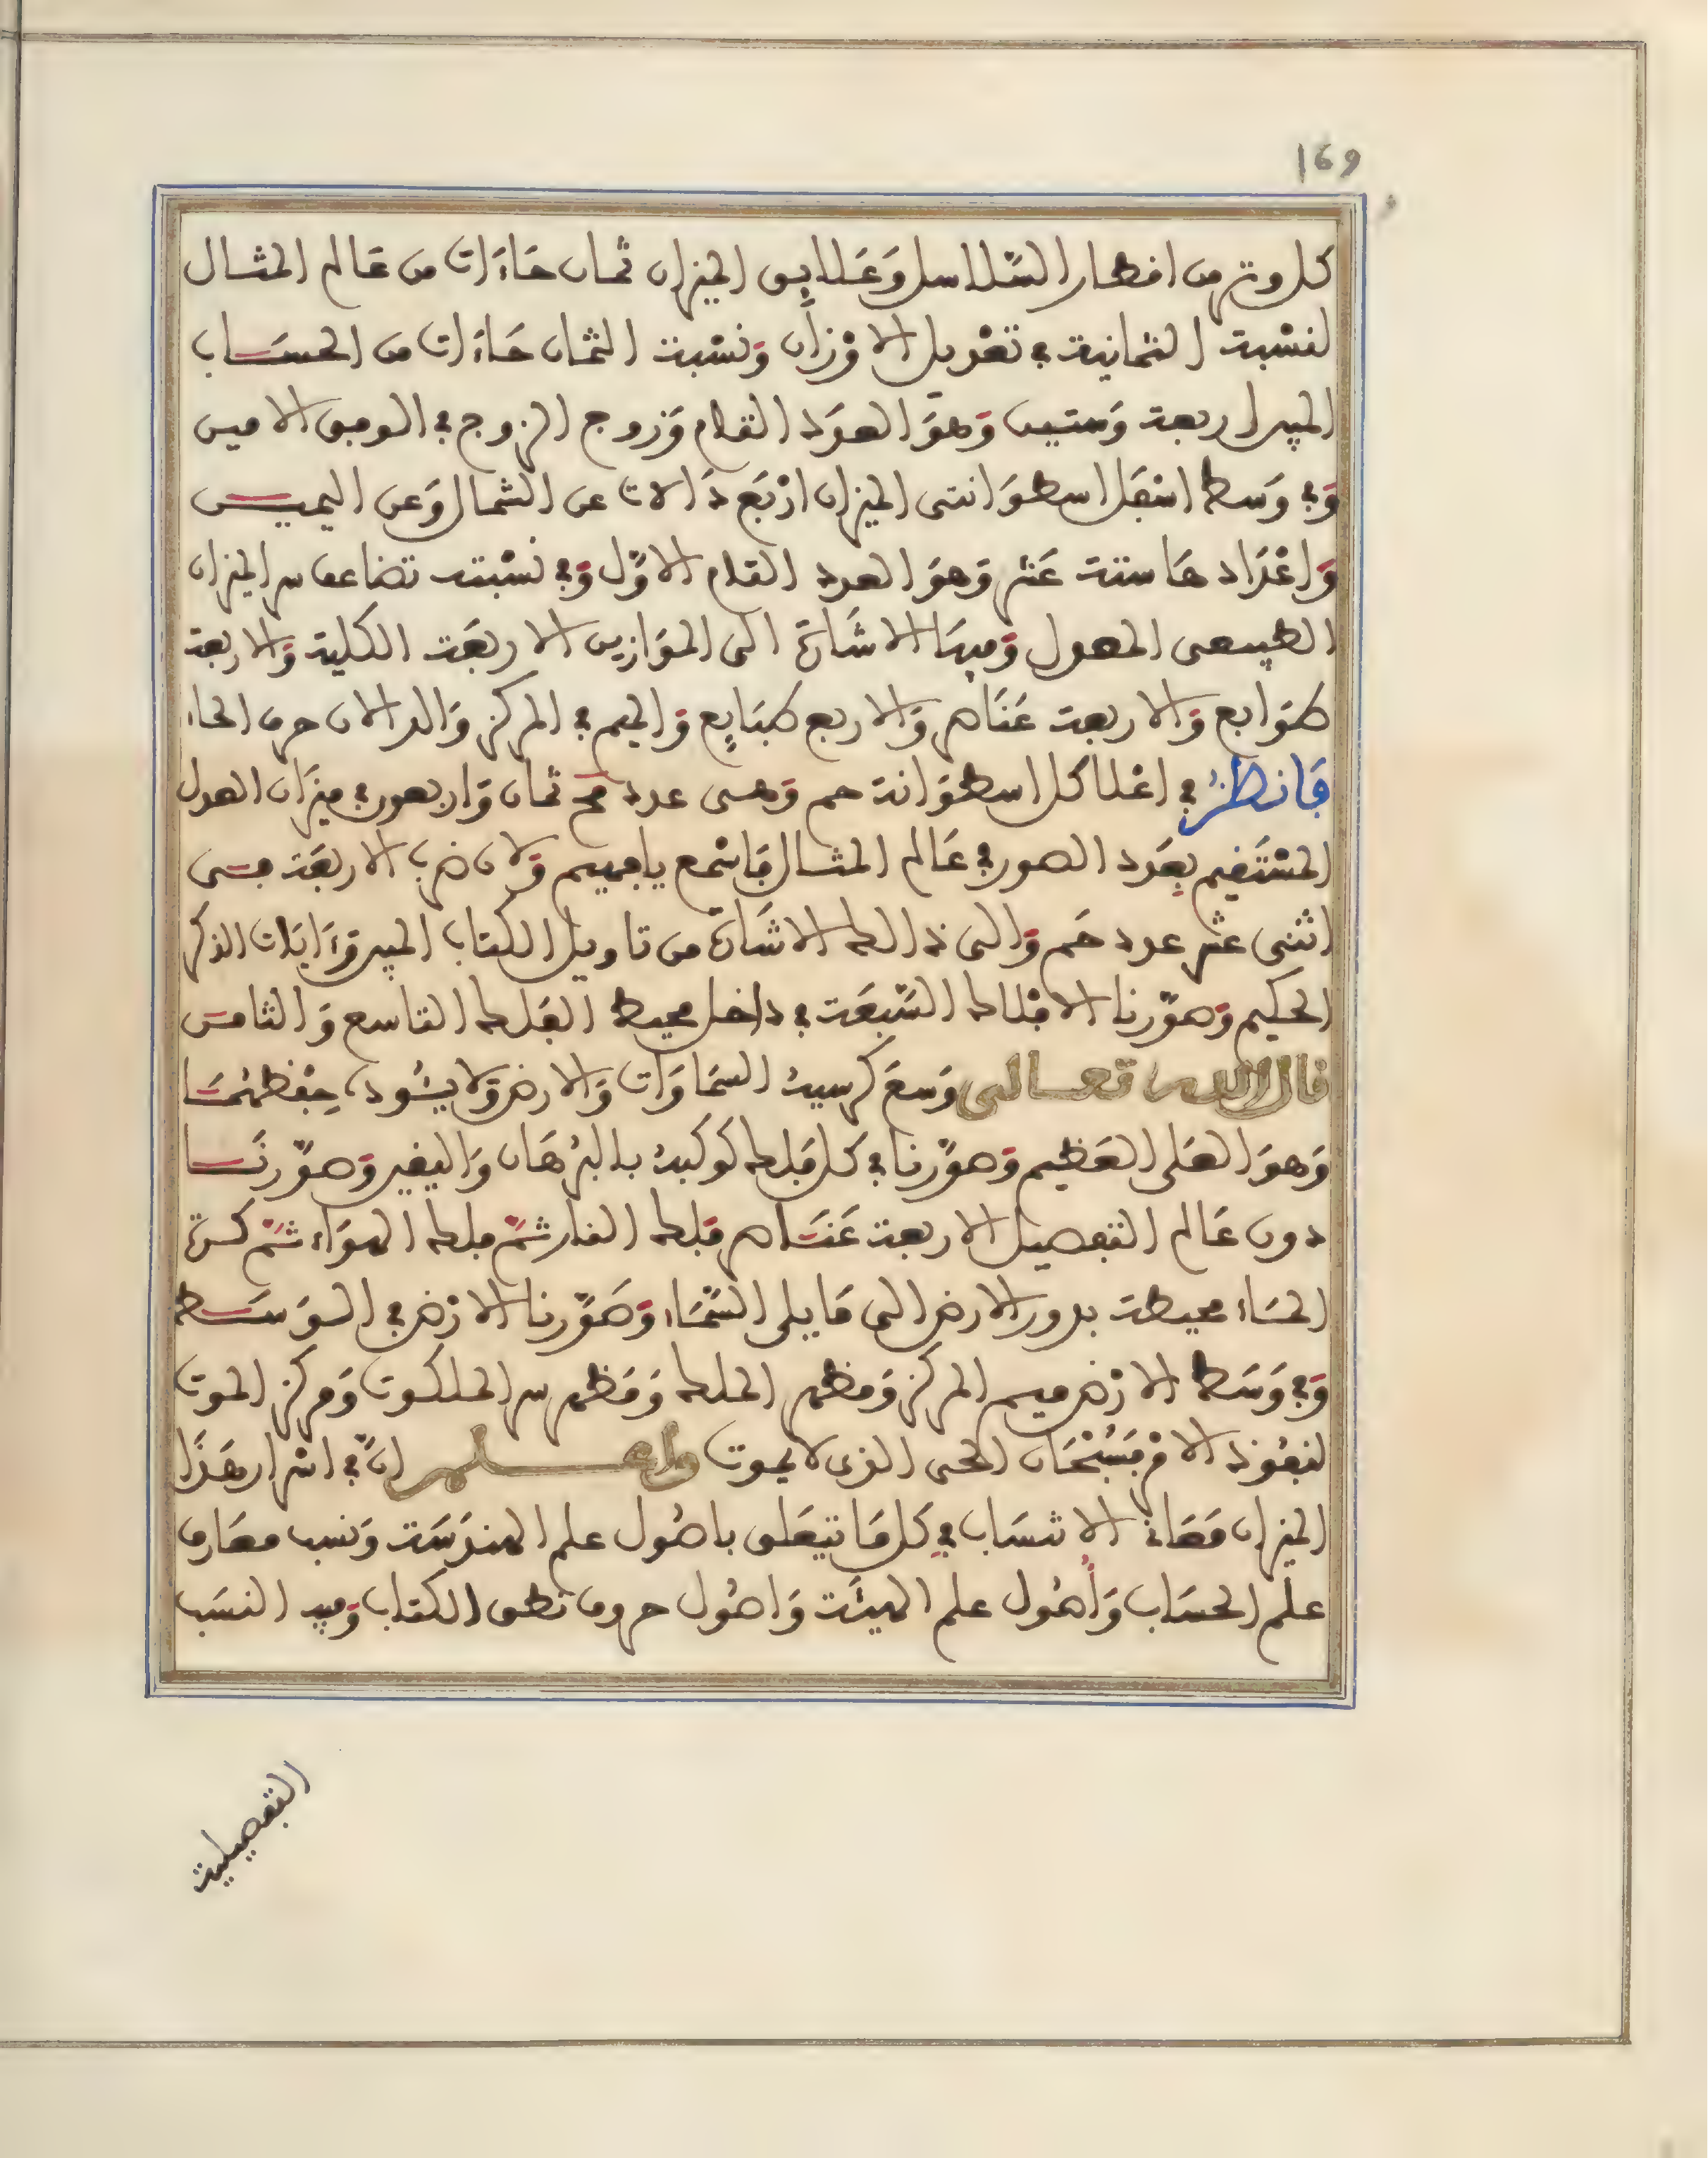 169
كل وتر من اقطار السّلاسل وَعَلايق الميزان ثمان حَاءَات من عَالم المثـال
لنسْبة الثمانية في تعْديل الاوْزان وَنسْبة الثمان حَاءَات من الحسَـاب
المبين اربعة وَستين وَهوَ العدَد التام وَزوج الزوج في الوفق الامين
وَفي وَسط اسْفل اسطوَانتى الميزان ارْبَع دَالات عن الشمال وَعن اليميـن
وَاعْدَادها ستة عَشر وَهوَ العدد التام الاوّل وَفي نسْبته تضاعف سر الميزان
الطبيعى المعدول وَفيهَا الاشارَة الى الموَازين الاربعَة الكلية وَالاربعة
طوَابع وَالاربعة عَنَاصر وَالاربع طبَايع وَالميم في المركز وَالدالان حرف الحاء
فَانظرْ في اعْلا كل اسطوَانة حم وَهـى عدد مح ثمان وَاربعون في ميزان العدل
المسْتَقيم بعَدد الصور في عَالم المثـال فَاسْمع يا فهيم وَلان ضرب الاربعَة فـى
اثنى عشر عدد حَم وَالى ذالك الاشَارَة من تاويل الكتاب المبين وَءَايَات الذكر
الحكيم وَصوّرنا الافلاك السّبعَة في داخل محيط الفلك التاسع وَالثامن
قال الله تعـالى وَسعَ كرسيه السمَاوَات وَالارض وَلا يـُود، حِفظهُمَـا
وَهوَ العَلى العَظيم وَصوّرنا في كل فَلك كوكبه بالبرْهَان وَاليقين وَصوّرنَـا
دون عَالم التفصيل الاربعة عَنَـاصر فلك النار ثـمّ فلك الهوَاء ثـم كـرة
المـَاء محيطة بدور الارض الى مَا يلى السّمَاء وَصَوّرنا الارْض في الـوَسَـط
وَفي وَسَط الارْض ميم المركز وَمظهر الملك وَمَظهر سر الملكوت وَمركز الموت
لنفُوذ الامْر فَسُبْحَان الحى الذى لا يموت واعـــلم انّ في اسْرار هَذَا
الميزان مَعَاني الانتسَاب في كل مَا يتعَلق باصُول علم الهندسَة وَنسب معَارف
علم الحسَاب وَأُصُول علم الهيئَة وَاصُول حروف نطق الكتاب وَفيه النسَب
التفصيلية